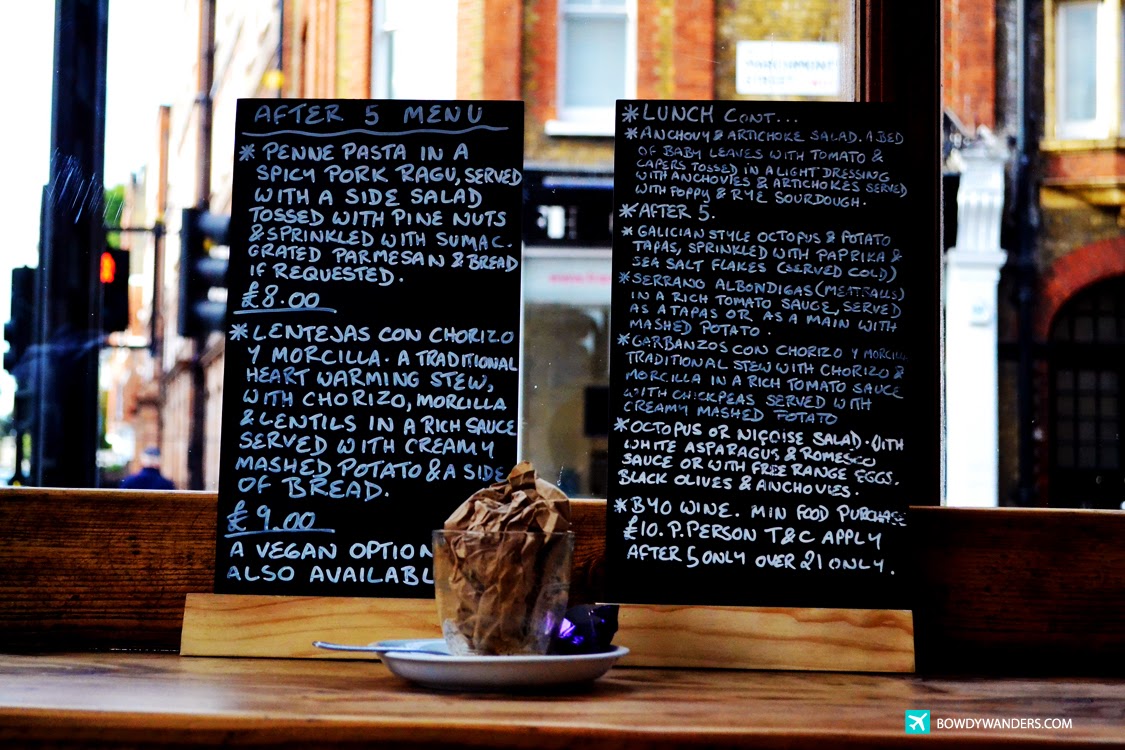 AFTER 5 MENU
* PENNE PASTA IN A
SPICY PORK RAGU, SERVED
WITH A SIDE SALAD
TOSSED WITH PINE NUTS
& SPRINKLED WITH SUMAC.
GRATED PARMESAN & BREAD
IF REQUESTED.
£8.00
* LENTEJAS CON CHORIZO
Y MORCILLA. A TRADITIONAL
HEART WARMING STEW,
WITH CHORIZO, MORCILLA
& LENTILS IN A RICH SAUCE
SERVED WITH CREAMY
MASHED POTATO & A SIDE
OF BREAD.
£9.00
A VEGAN OPTION
ALSO AVAILABL
* LUNCH CONT...
* ANCHOVY & ARTICHOKE SALAD. A BED
OF BABY LEAVES WITH TOMATO &
CAPERS TOSSED IN A LIGHT DRESSING
WITH ANCHOVIES & ARTICHOKES SERVED
WITH POPPY & RYE SOURDOUGH.
* AFTER 5.
* GALICIAN STYLE OCTOPUS & POTATO
TAPAS, SPRINKLED WITH PAPRIKA &
SEA SALT FLAKES (SERVED COLD)
* SERRANO ALBONDIGAS (MEATBALLS)
IN A RICH TOMATO SAUCE, SERVED
AS A TAPAS OR AS A MAIN WITH
MASHED POTATO.
* GARBANZOS CON CHORIZO Y MORCILL
TRADITIONAL STEW WITH CHORIZO &
MORCILLA IN A RICH TOMATO SAUCE
WITH CHICKPEAS SERVED WITH
CREAMY MASHED POTATO
* OCTOPUS OR NIÇOISE SALAD. WITH
WHITE ASPARAGUS & ROMESCO
SAUCE OR WITH FREE RANGE EGGS.
BLACK OLIVES & ANCHOVIES.
* BYO WINE. MIN FOOD PURCHASE
£10. P.PERSON T&C APPLY
AFTER 5 ONLY OVER 21 ONLY.
BOWDYWANDERS.COM